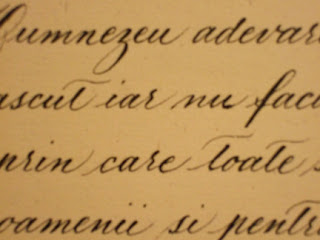 Dumnezeu adevar
ascut iar nu facu
prin care toate s
oamenii si pentr